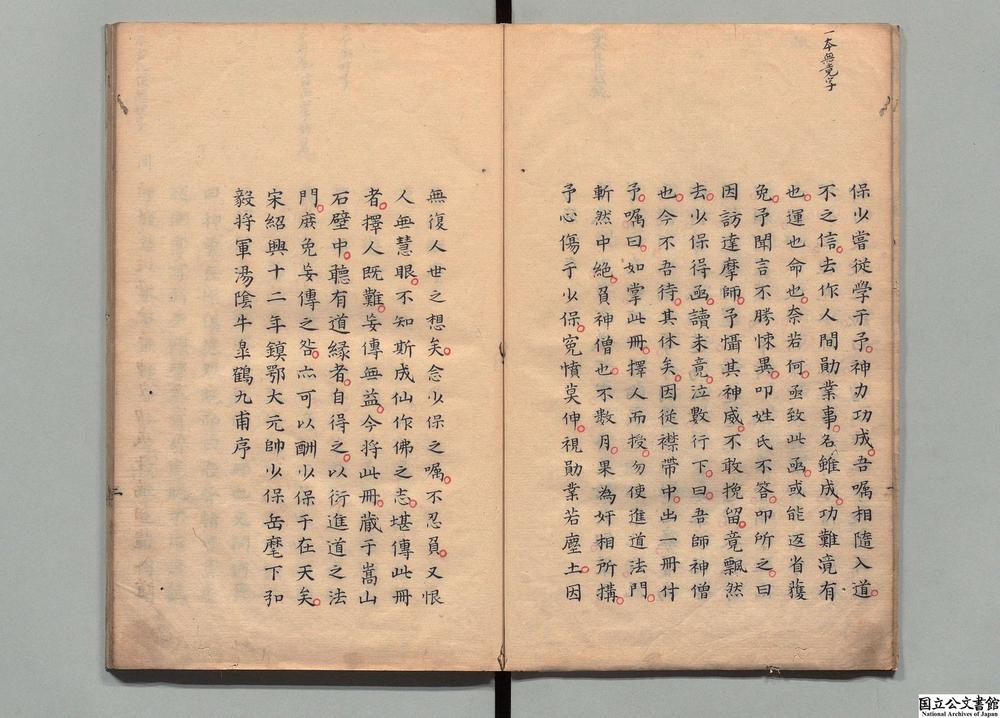 一本無竟字
保少嘗從學于予神力功成吾囑相隨入道
不之信去作人間勛業事名雖成功難竟有
也運也命也奈若何亟致此函或能返省獲
免予聞言不勝悚異叩姓氏不答叩所之曰
因訪達摩師予懾其神威不敢挽留竟飄然
去少保得函讀未竟泣數行下曰吾師神僧
也今不吾待其休矣因從襟帶中出一冊付
予囑曰如掌此冊擇人而授勿使進道法門
斬然中絕負神僧也不數月果為奸相所搆
予心傷于少保寃憤莫伸視勛業若塵土因
無復人世之想矣念少保之囑不忍負又恨
人無慧眼不知斯成仙作佛之志堪傳此冊
者擇人既難妄傳無益今將此冊藏于嵩山
石壁中聽有道緣者自得之以衍進道之法
門庻免妄傳之咎亦可以酬少保于在天矣
宋紹興十二年鎮鄂大元帥少保岳麾下弘
毅将軍湯陰牛臯鶴九甫序
国立公文書館
National Archives of Japan